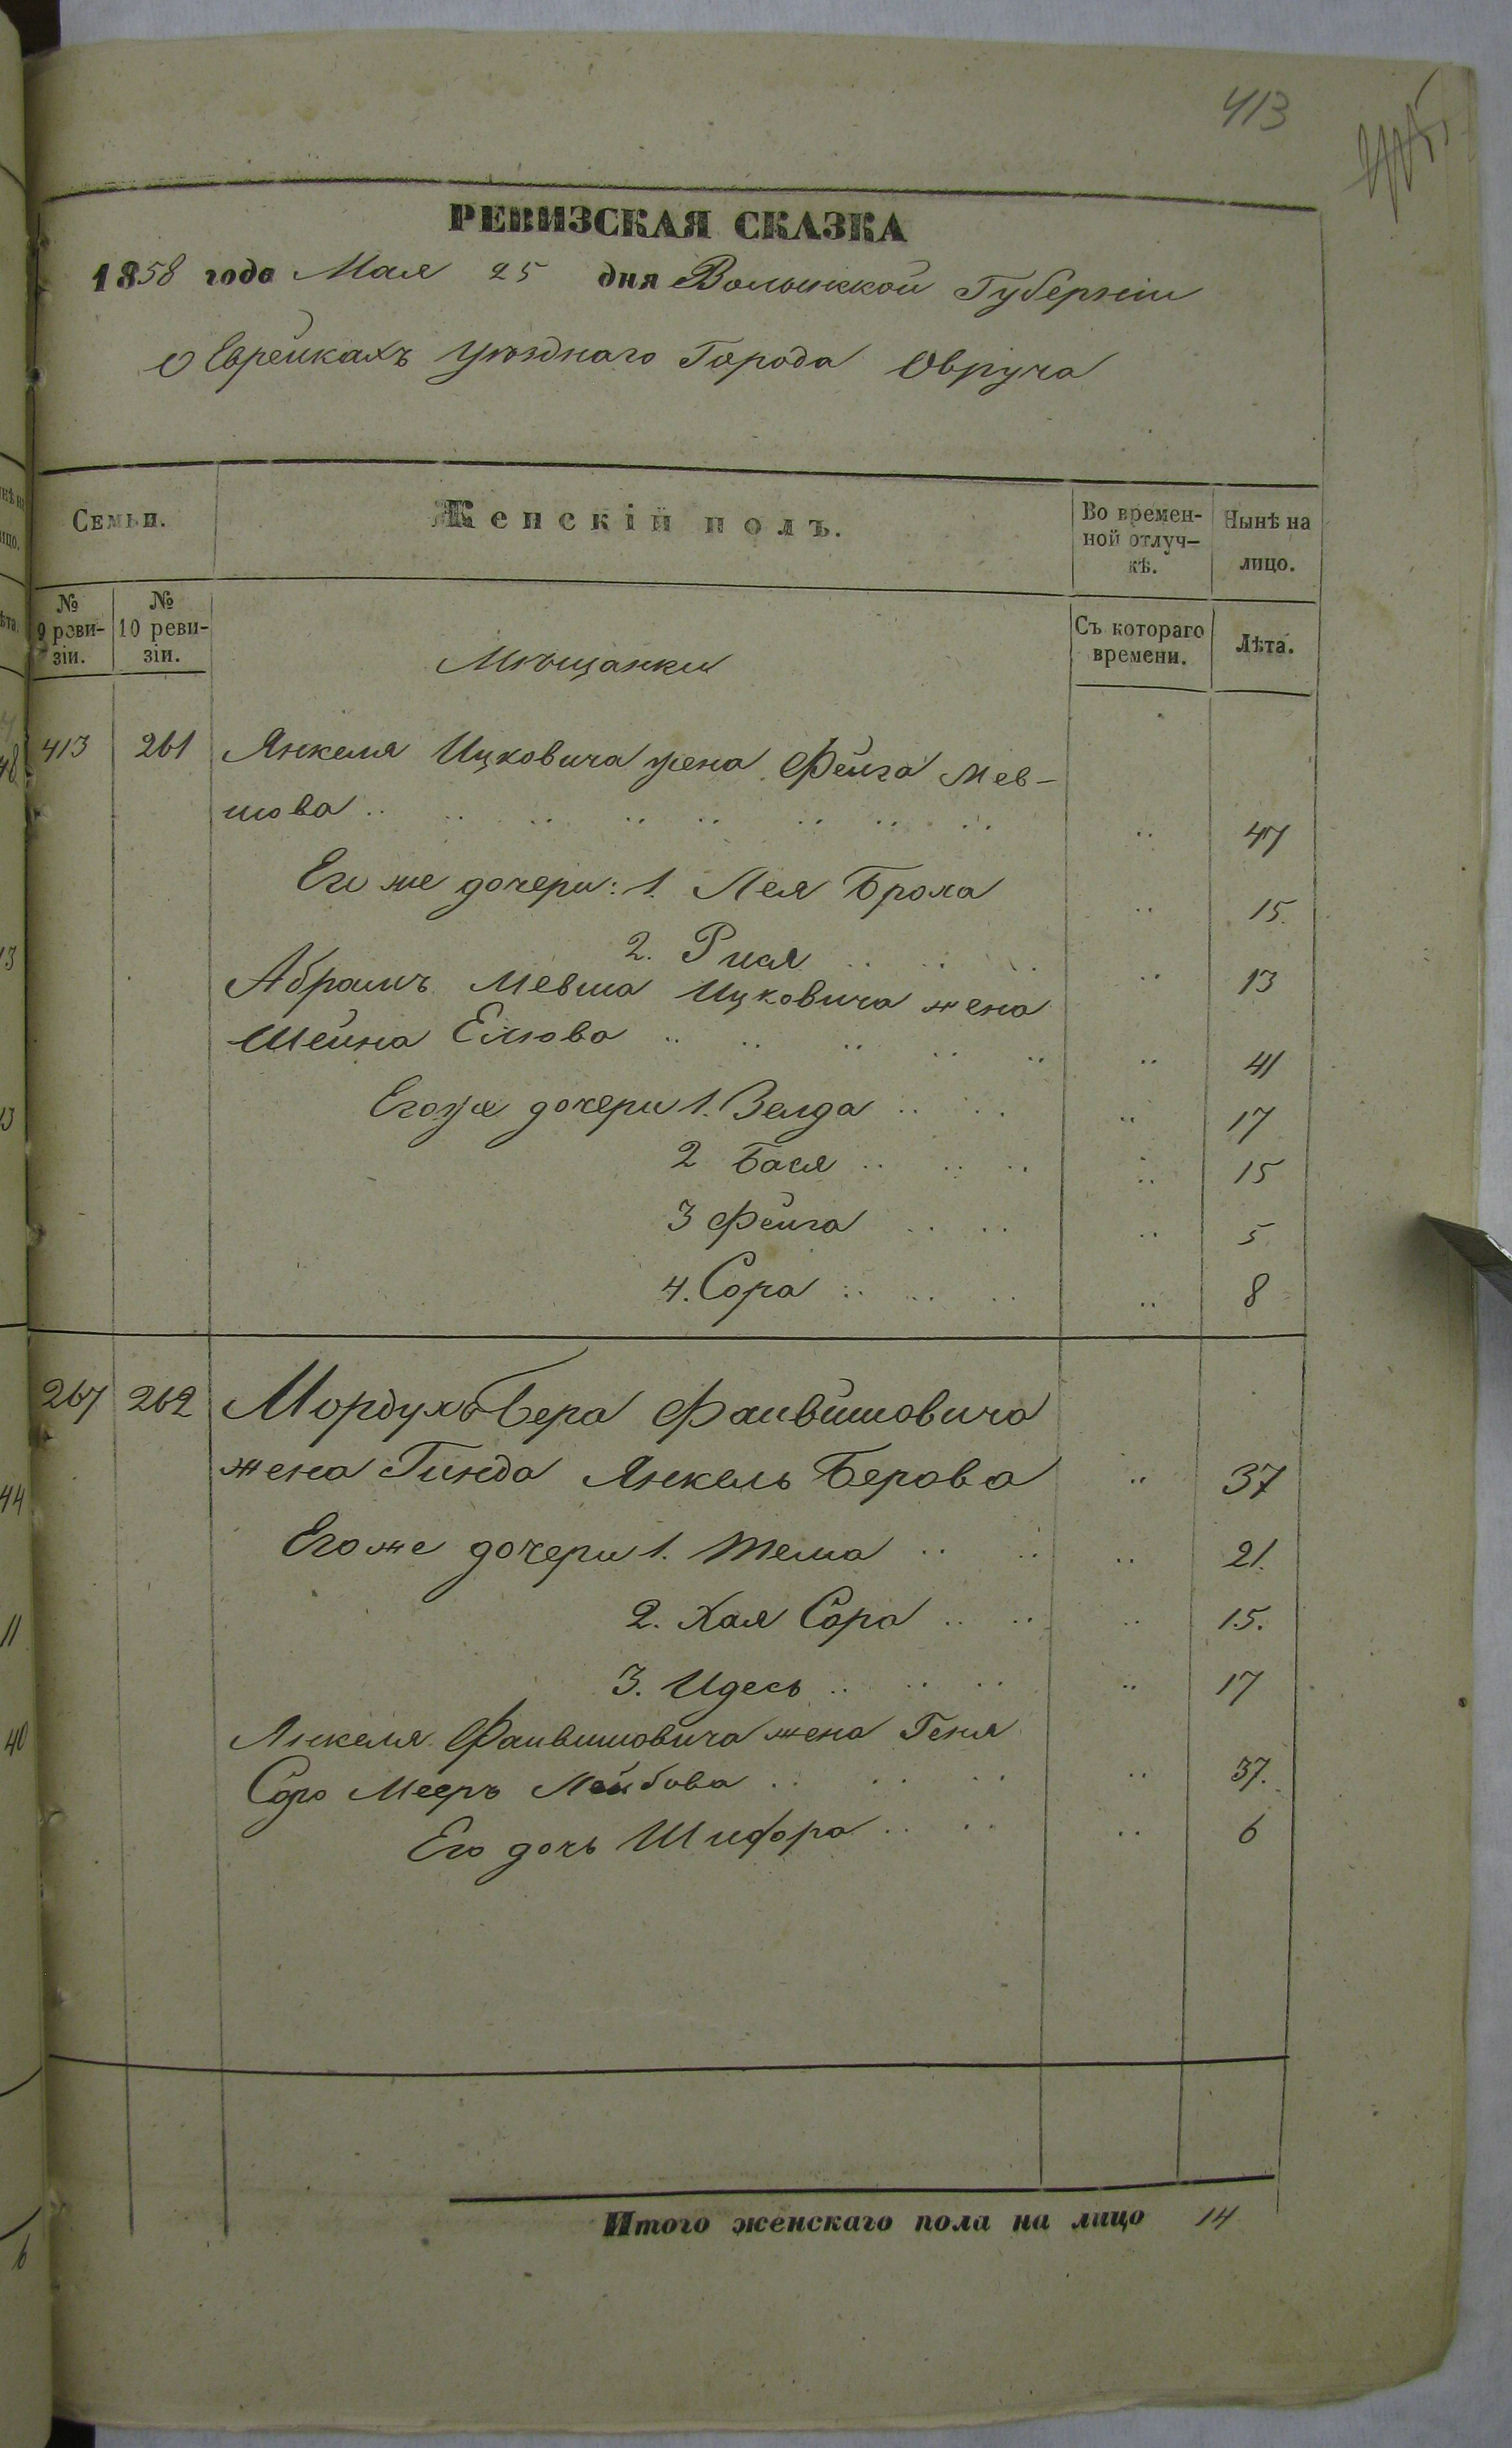 413
РЕВИЗСКАЯ СКАЗКА
1858 года Мая 25 дня Волынской Губерніи
о Еврейкахъ уѣзднаго Города Овруча
Семьи.
Женскій полъ.
Во времен-
ной отлуч-
кѣ.
Нынѣ на
лицо.
№
9 реви-
зіи.
№
10 реви-
зіи.
Съ котораго
времени.
Лѣта.
Мѣщанки
413 261 Янкеля Ицковича жена Фейга Мев-
шова 47
Его же дочери: 1. Лея Броха 15
2. Рися 13
Абрамъ Мевша Ицковича жена
Шейна Елюва 41
Егоже дочери 1. Зелда 17
2 Бася 15
3 Фейга 5
4. Сора 8
267 262 Мордухъ Бера Файвишовича
жена Гинда Янкель Берова 37
Егоже дочери 1. 21.
2. Хая Сора 15.
3. Идесь 17
Янкеля Файвишовича жена Геня
Соро Мееръ Лейбова 37.
Его дочь Шифра 6
Итого женскаго пола на лицо 14